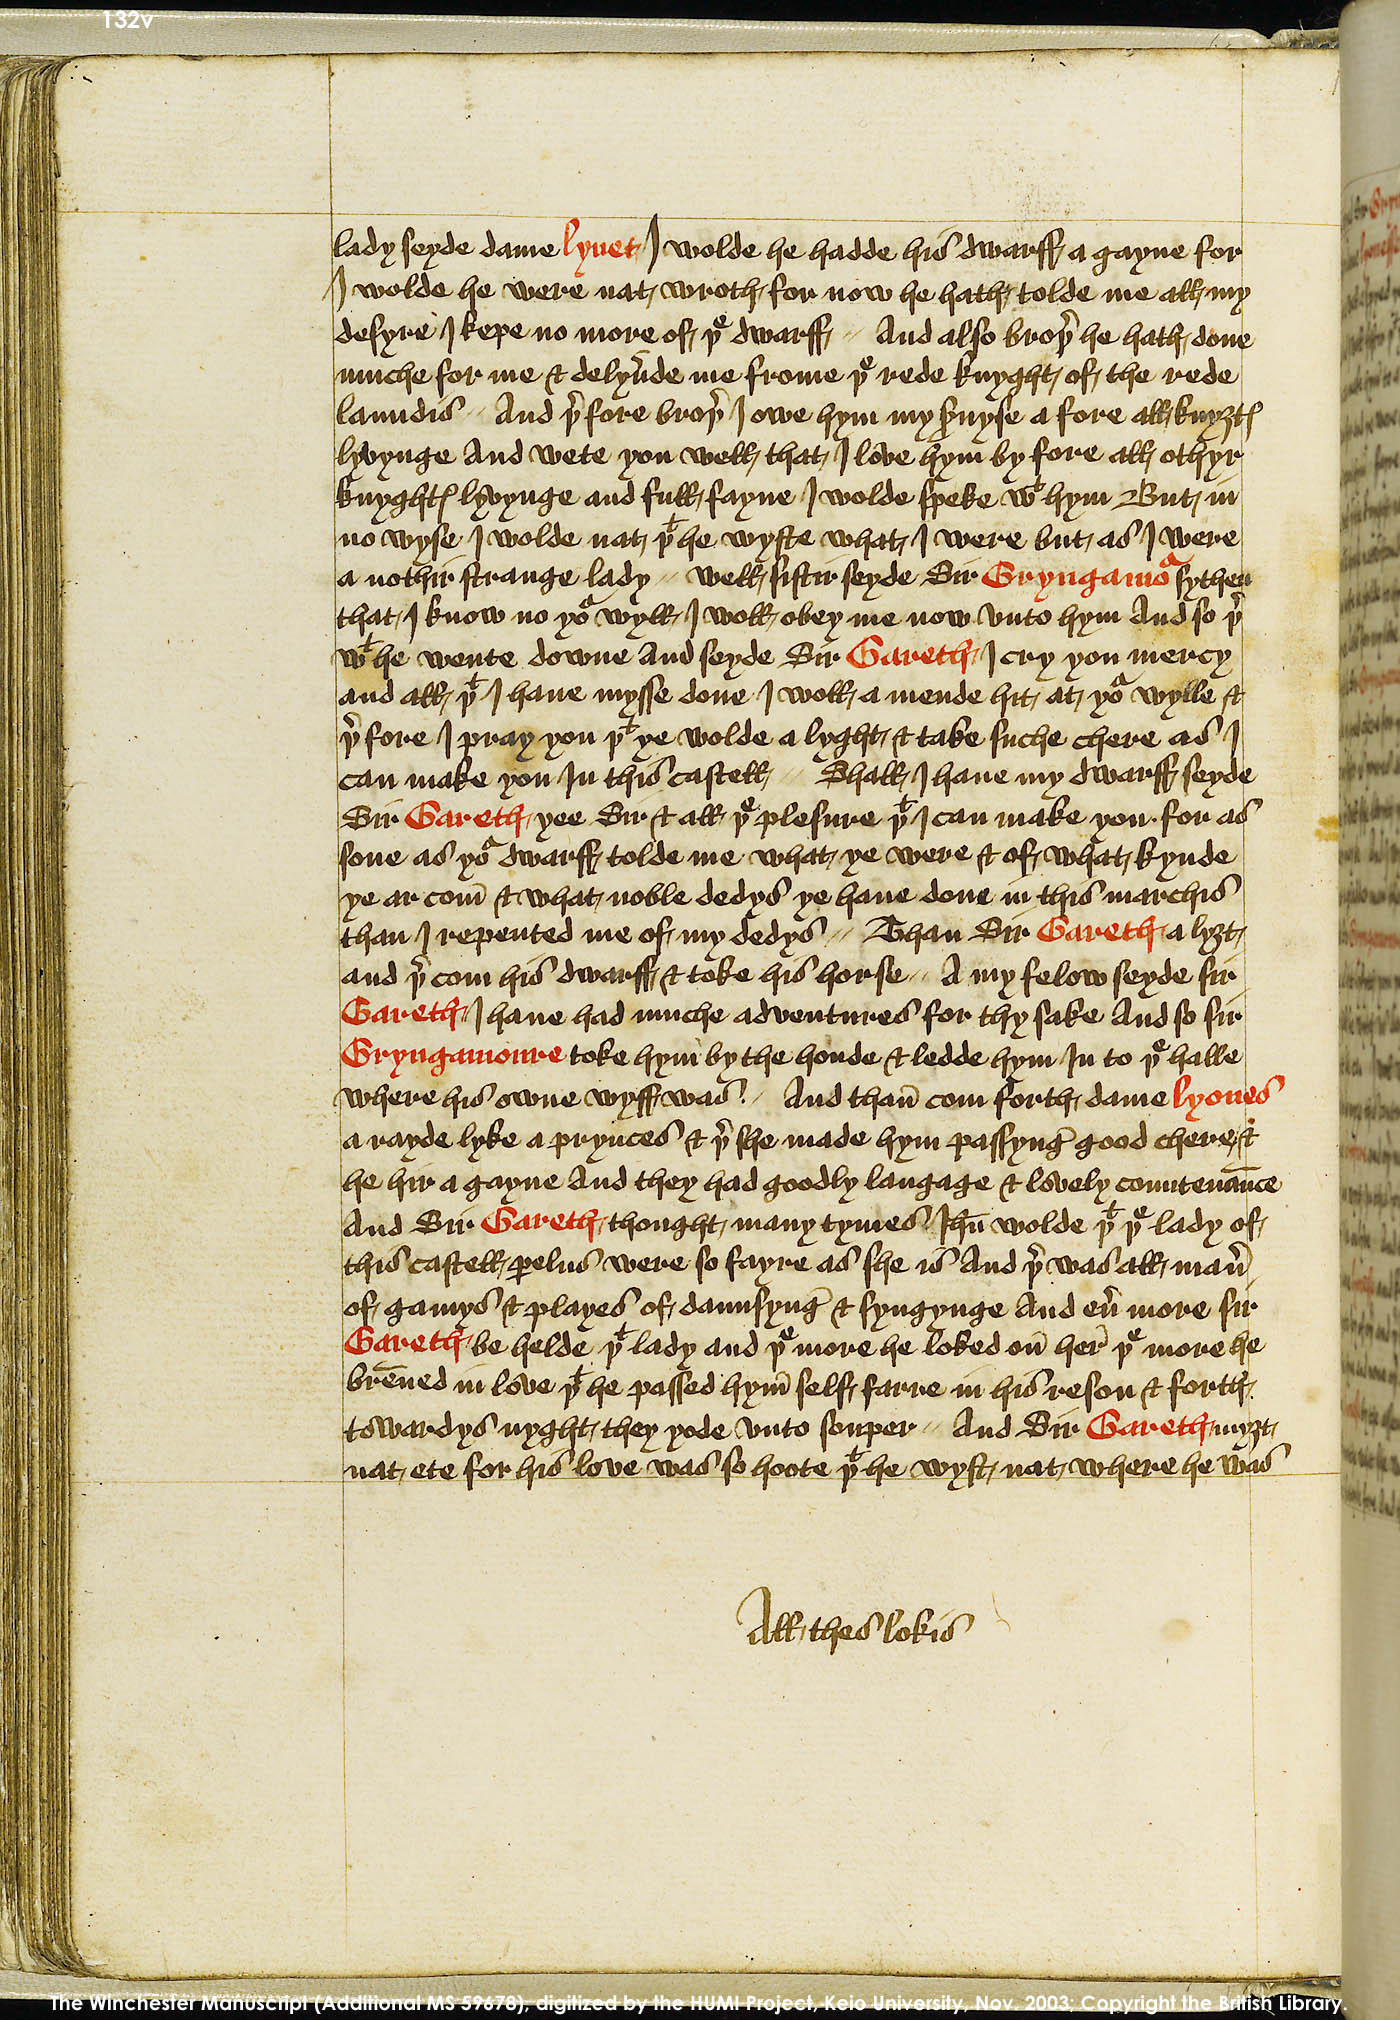 132v
lady seyde dame lyuet I wolde he hadde his dwarff a gayne for
I wolde he were nat wroth for now he hath tolde me all my
desyre I kepe no more of þᵉ dwarff // And also broþ̉ he hath done
muche for me & delyủde me frome þᵉ rede knyght of the rede
laundis // And þ̉fore broþ̉ I owe hym my s̉uyse a fore all knyȝtꝭ
lyvynge And wete you well that I love hym by fore all othyr
knyghtꝭ lyvynge and full fayne I wolde speke wᵗ hym But in
no wyse I wolde nat þᵗ he wyste what I were but as I were
a nothir strange lady // well sistir seyde Sir Gryngamoᷣ sythen
that I know no yoᷣ wyll I woll obey me now vnto hym And so þ̉
wᵗ he wente downe And seyde Sir Gareth I cry you mercy
and all þᵗ I haue mysse done I woll a mende hit at yoᷣ wylle &
þ̉fore I pray you þᵗ ye wolde a lyght & take suche chere as I
can make you In this castell // Shall I haue my dwarff seyde
Sir Gareth yee Sir & all þᵉ plesure þᵗ I can make you for as
sone as yoᷣ dwarff tolde me what ye were & of what kynde
ye ar com̄ & what noble dedys ye haue done in this marchis
than I repented me of my dedys // Than Sir Gareth a lyȝt
and þ̉ com his dwarff & toke his horse // A my felow seyde sir
Gareth I haue had muche adventures for thy sake And so sir
Gryngamoure toke hym by the honde & ledde hym In to þᵉ halle
where his owne wyff was // And than̄ com forth dame lyones
a rayde lyke a prynces & þ̉ she made hym passyng̉ good chere &
he hir a gayne And they had goodly langage & lovely countenan̄ce
And Sir Gareth thought many tymes Ihū wolde þᵗ þᵉ lady of
this castell ꝑelus were so fayre as she is And þ̉ was all man̉
of gamys & playes of daunsyng̉ & syngynge And eủ more sir
Gareth be helde þᵗ lady and þᵉ more he loked on̄ her̉ þᵉ more he
bren̄ed in love þᵗ he passed hym̄ self farre in his reson & forth
towardys nyght they yode vnto souper // And Sir Gareth myȝt
nat ete for his love was so hoote þᵗ he wyst nat where he was
All thes lokis
The Winchester Manuscript (Additional MS 59678), digitized by the HUMI Project, Keio University, Nov. 2003; Copyright the British Library.